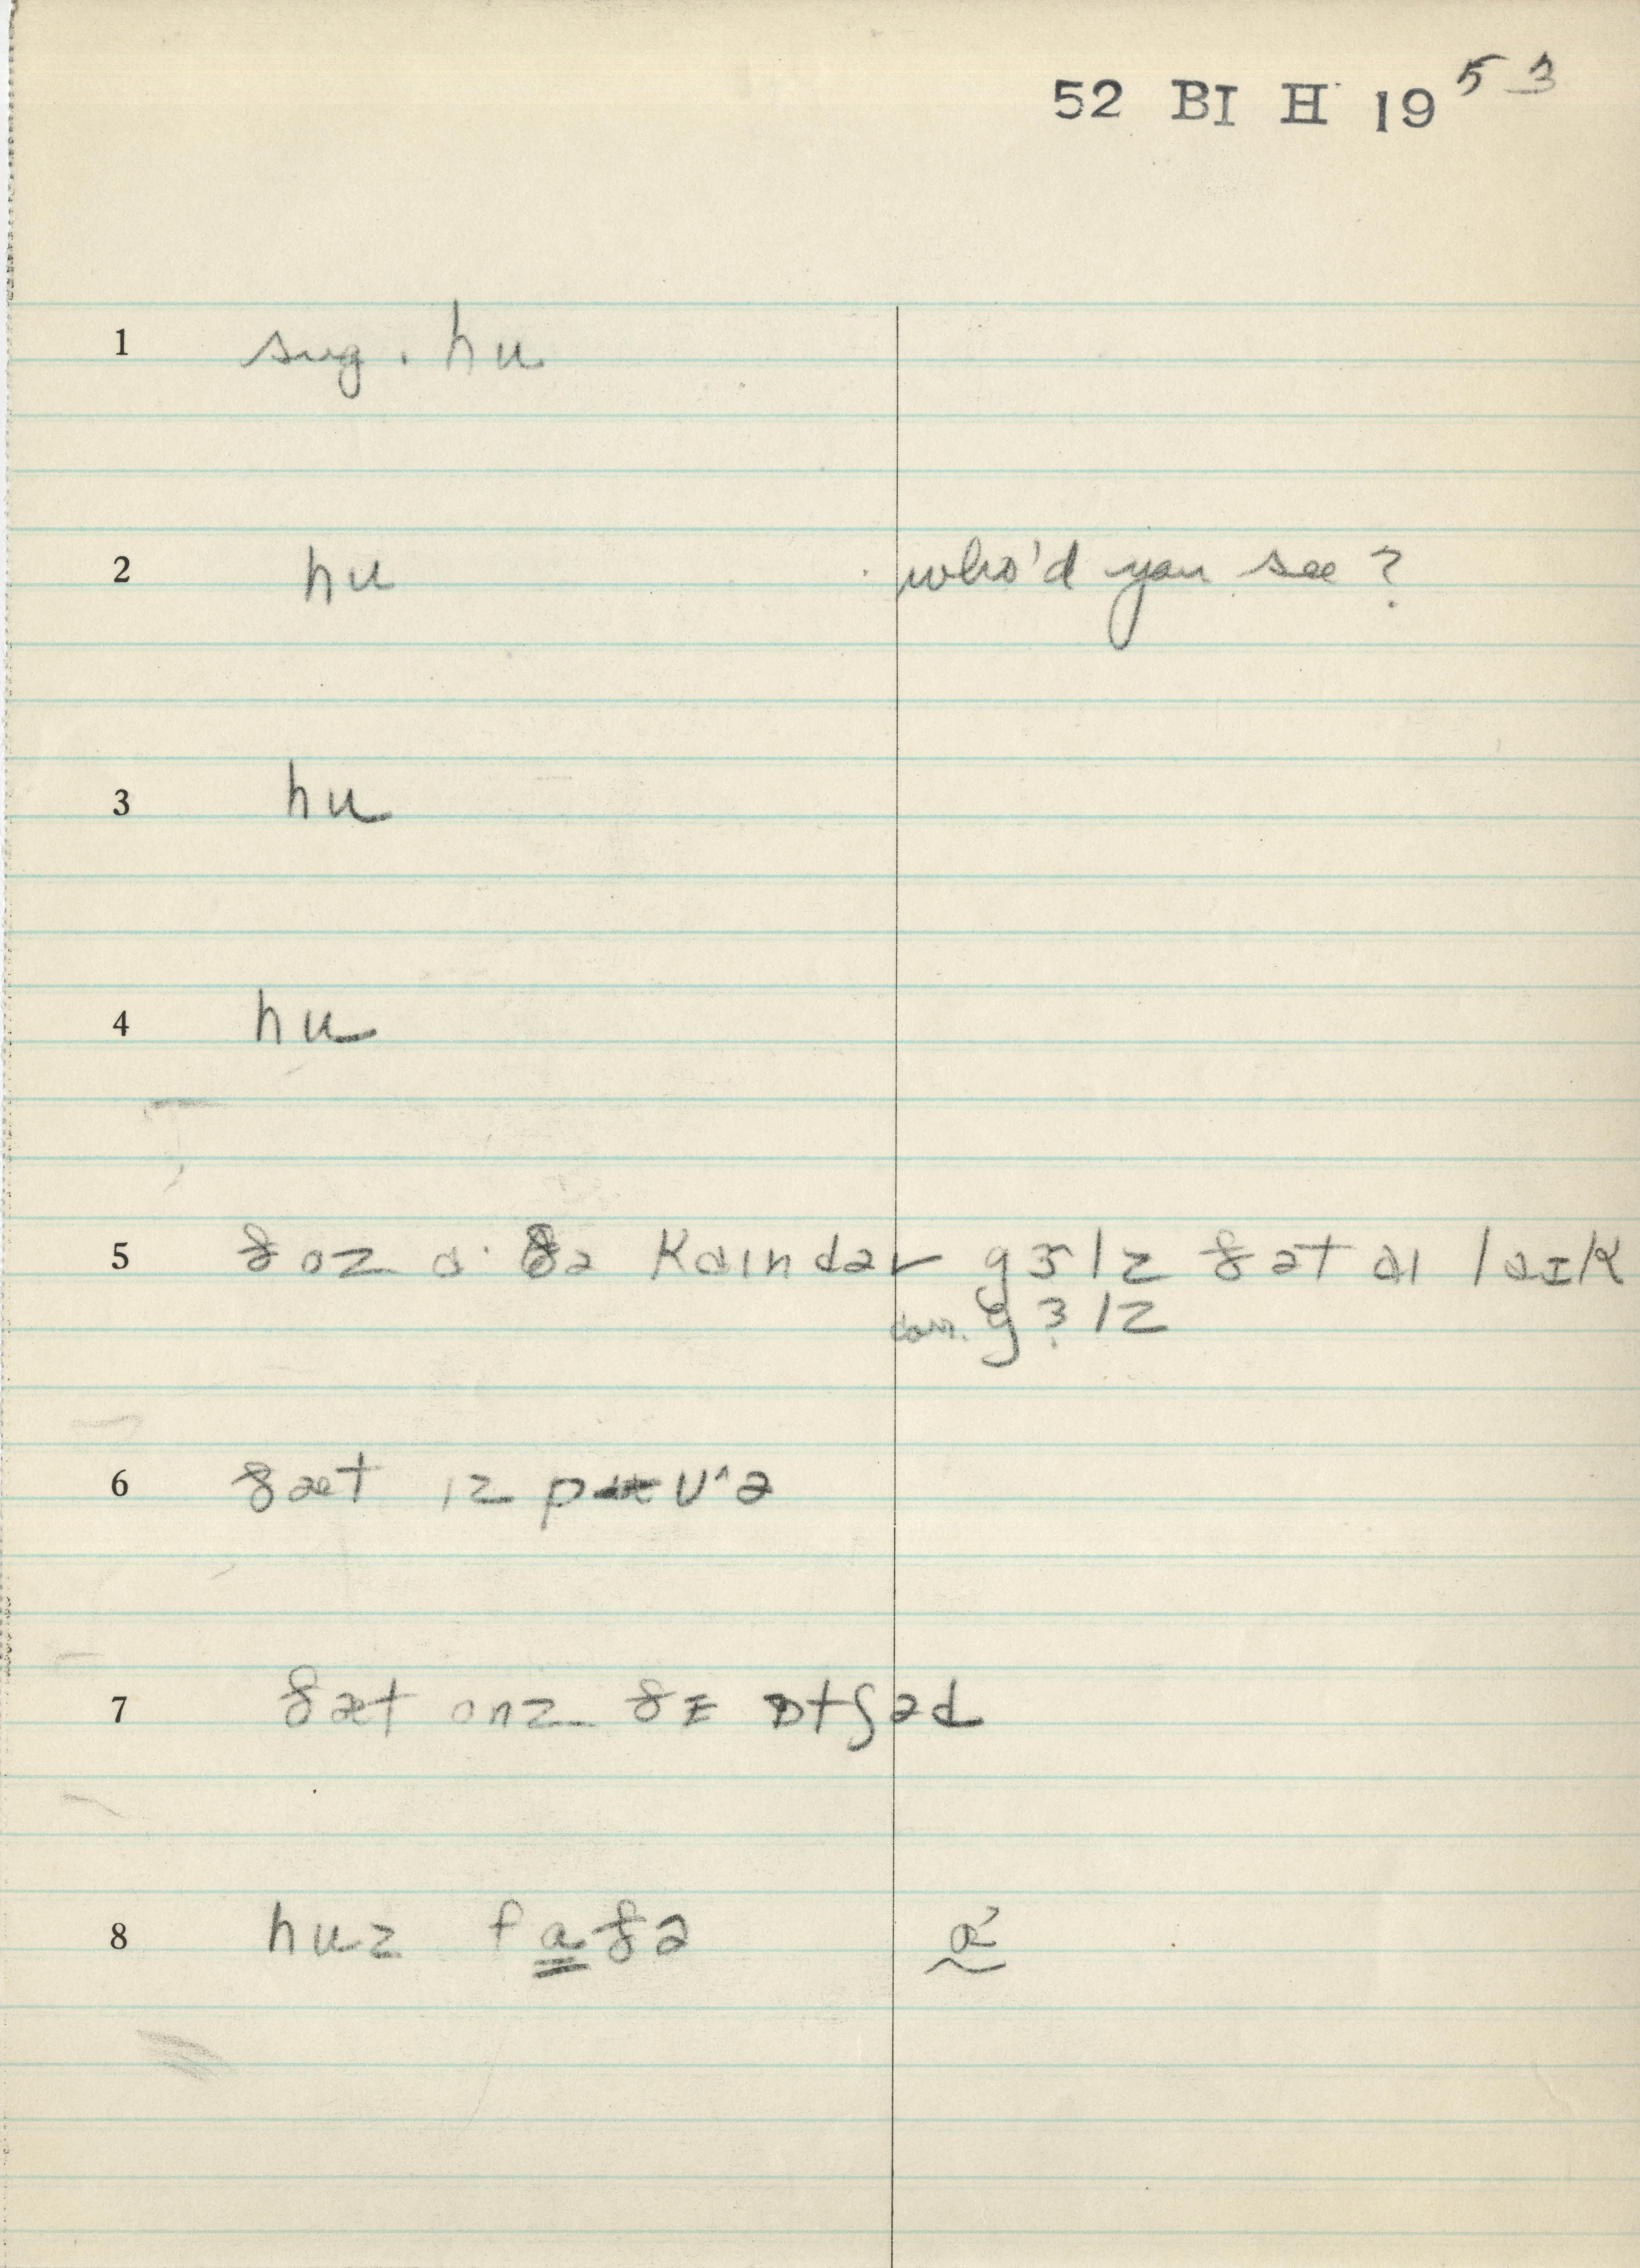 52 BI H 19 53
1 sug. hu
2 hu who'd you see?
3 hu
4 hu
5 ðoz ɑ· ðə kɑɪndər gɜlz ðət aɪ laɪk
gɜlz
6 ðæt ɪz p
7 ðæt onz ðɪ ɒtʃəd
8 huz fɑðə ɑ